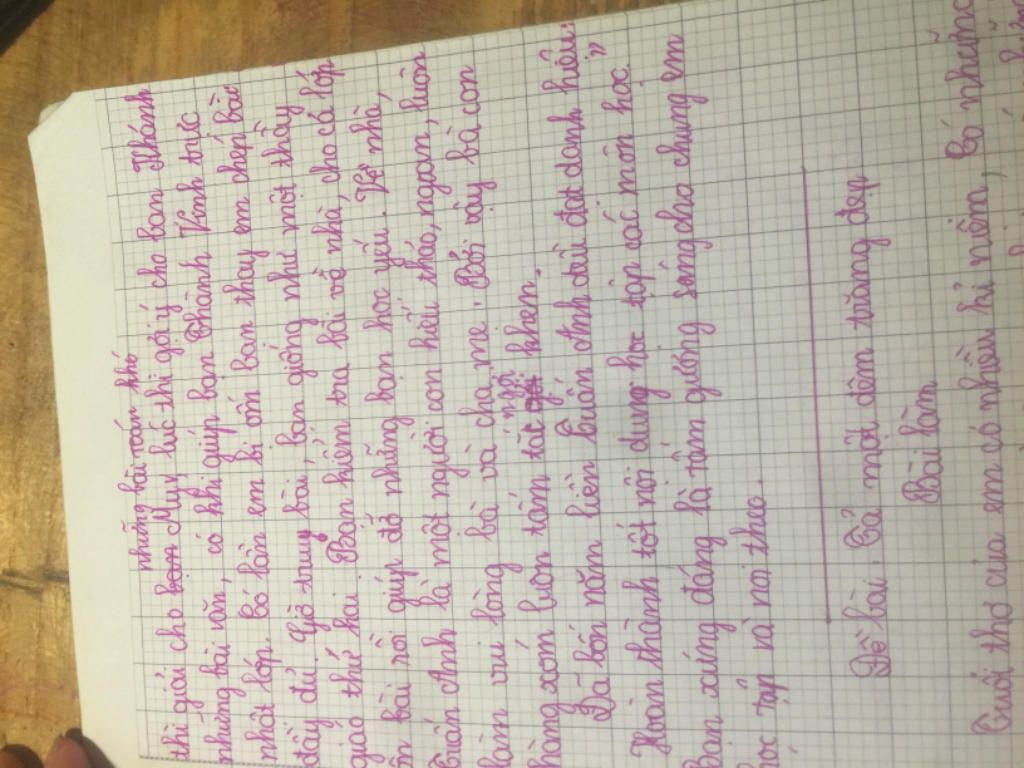 những bài toán khó
thì giải cho bạn Muy lúc thì gợi ý cho bạn Khánh
những bài văn, có khi giúp bạn Thành Vinh trực
nhật lớp. Có lần em bị ốm bạn thay em chép bài
đầy đủ. Giờ truy bài, bạn giống như một thầy
giáo thứ hai. Bạn kiểm tra bài về nhà, cho cả lớp
ôn bài rồi giúp đỡ những bạn học yếu. Về nhà,
Tuấn Anh là một người con hiếu thảo, ngoan, luôn
làm vui lòng bà và cha mẹ. Bởi vậy bà con
hàng xóm luôn tấm tắc ngợi khen.
Đã bốn năm liền Tuấn Anh đều đạt danh hiệu:
Hoàn thành tốt nội dung học tập các môn học."
Bạn xứng đáng là tấm gương sáng cho chúng em
học tập và noi theo.
Đề bài: Tả một đêm trăng đẹp
Bài làm
Tuổi thơ của em có nhiều kỉ niệm, Có những